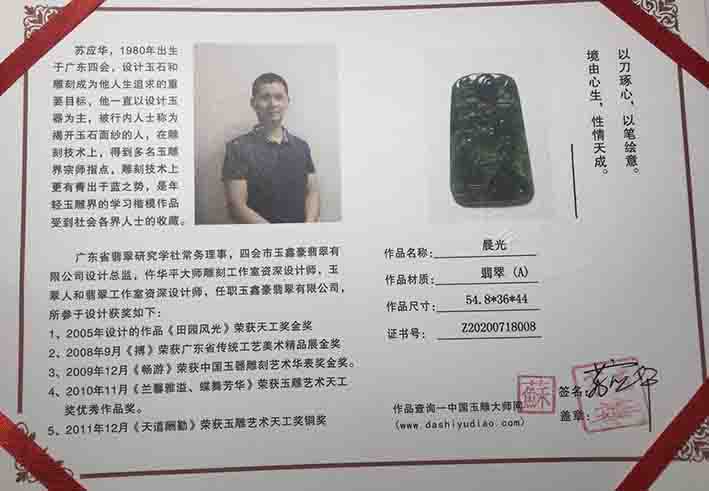 苏应华，1980年出生
于广东四会，设计玉石和
雕刻成为他人生追求的重
要目标，他一直以设计玉
器为主，被行内人士称为
揭开玉石面纱的人，在雕
刻技术上，得到多名玉雕
界宗师指点，雕刻技术上
更有青出于蓝之势，是年
轻玉雕界的学习楷模作品
受到社会各界人士的收藏。
广东省翡翠研究学社常务理事，四会市玉鑫豪翡翠有
限公司设计总监，仵华平大师雕刻工作室资深设计师，玉
翠人和翡翠工作室资深设计师，任职玉鑫豪翡翠有限公司，
所参子设计获奖如下：
1、2005年设计的作品《田园风光》荣获天工奖金奖
2、2008年9月《搏》荣获广东省传统工艺美术精品展金奖
3、2009年12月《畅游》荣获中国玉器雕刻艺术华表奖金奖。
4、2010年11月《兰馨雅溢、蝶舞芳华》荣获玉雕艺术天工
奖优秀作品奖。
5、2011年12月《天道酬勤》荣获玉雕艺术天工奖铜奖
以刀琢心，以笔绘意。
境由心生，性情天成。
作品名称： 晨光
作品材质： 翡翠（A）
作品尺寸： 54.8*36*44
证书号： Z20200718008
作品查询一中国玉雕大师网
(www.dashiyudiao.com)
蘇
签名：苏应华
盖章：